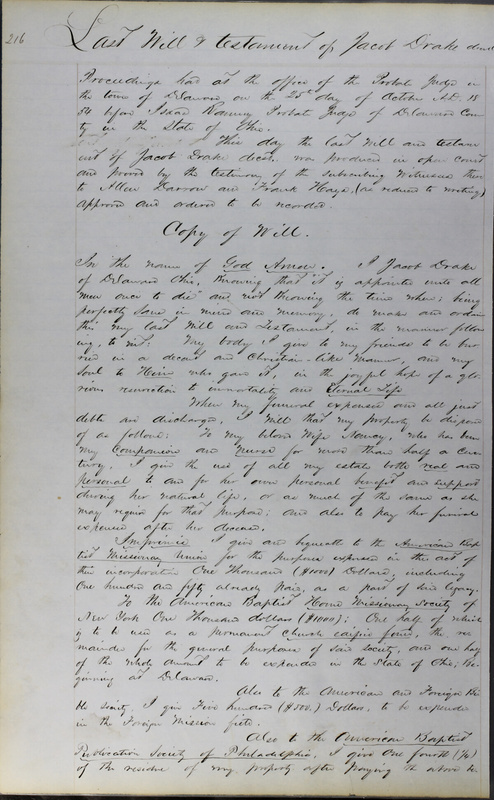 216
Last Will & testament of Jacob Drake decd
Proceedings had at the office of the Probate Judge in
the town of Delaware on the 25th day of October A.D. 18
54 before Isaac Ranney Probate Judge of Delaware Coun
ty in the State of Ohio.
This day the last Will and testam
ent of Jacob Drake decd. was produced in open court
and proved by the testimony of the subscribing Witnesses there
to Allen Darrow and Frank Hays, (as reduced to writing)
approved and ordered to be recorded.
Copy of Will.
In the name of God Amen. I Jacob Drake
of Delaware Ohio, Knowing that it is appointed unto all
men once to die and not Knowing the time when; being
perfectly sane in mind and memory, do make and ordain
this my last Will and Testament, in the manner follow
ing, to wit: My body I give to my friends to be bur
ried in a decent and Christian-like manner, and my
Soul to Him who gave it, in the joyful hope of a glo
rious resurrection to immortality and Eternal Life
When my funeral expenses and all just
debts are discharged, I Will that my property be dispos
of as follows: To my belovd Wife Nancy, who has been
my Companion and Nurse for more than half a Cen
tury, I give the use of all my estate both real and
personal to and for her own personal benefit and support
during her natural life, or as much of the same as she
may require for that purpose: and also to pay her funeral
expenses after her decease.
Imprimis I give and bequeath to the American Bap
tist Missionary Union for the purpose expressed in the act of
their incorporation One Thousand ($1000) Dollars, including
One hundred and fifty already paid, as a part of said legacy.
To the American Baptist Home Missionary Society of
New York One Thousand dollars ($1000); One half of which
is to be used as a permanent Church edifice fund, the re
mainder for the general purposes of said society, and one half
of the whole amount to be expended in the State of Ohio; Be
ginning at Delaware.
Also to the American and Foreign Bi
ble Society, I give Five hundred ($500.) Dollars, to be expended
in the Foreign Mission field.
Also to the American Baptist
Publication Society of Philadelphia, I give One fourth (¼)
of the residue of my property after paying the above be